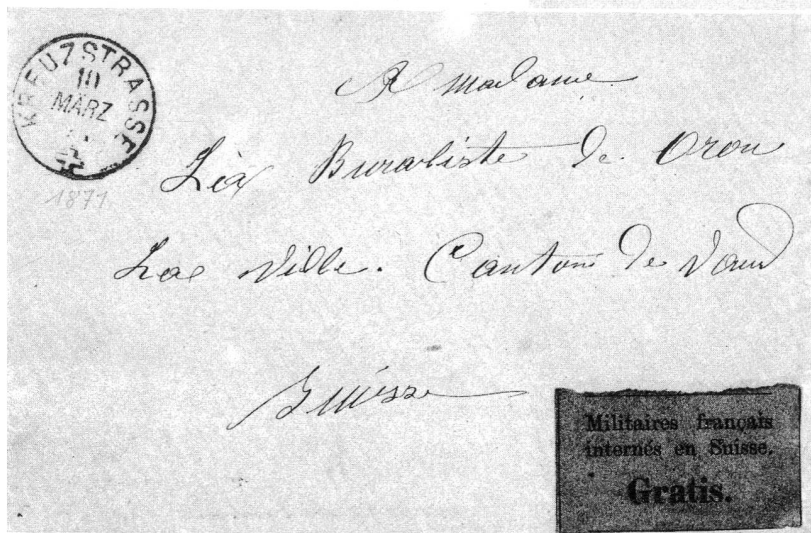 KREUZSTRASSE
10
MÄRZ
1871
A madame
Buraliste de Oron
La Ville. Canton de Vaud
Suisse
Militaires français
internés en Suisse.
Gratis.